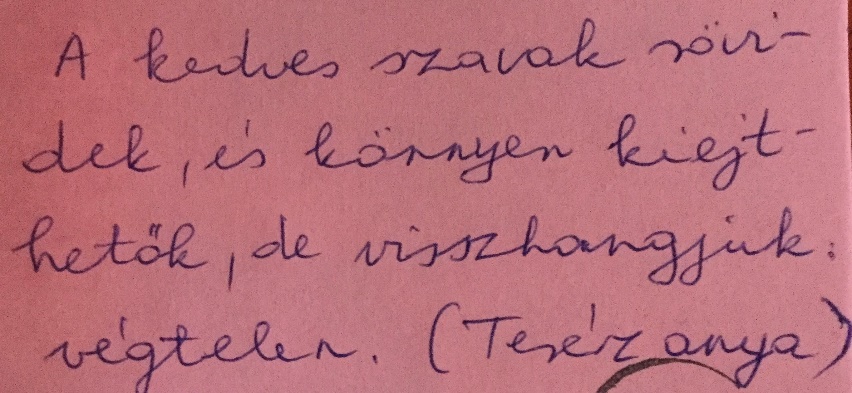 A kedves szavak rövi-
dek, és könnyen kiejt-
hetők, de visszhangjuk:
végtelen. (Teréz anya)